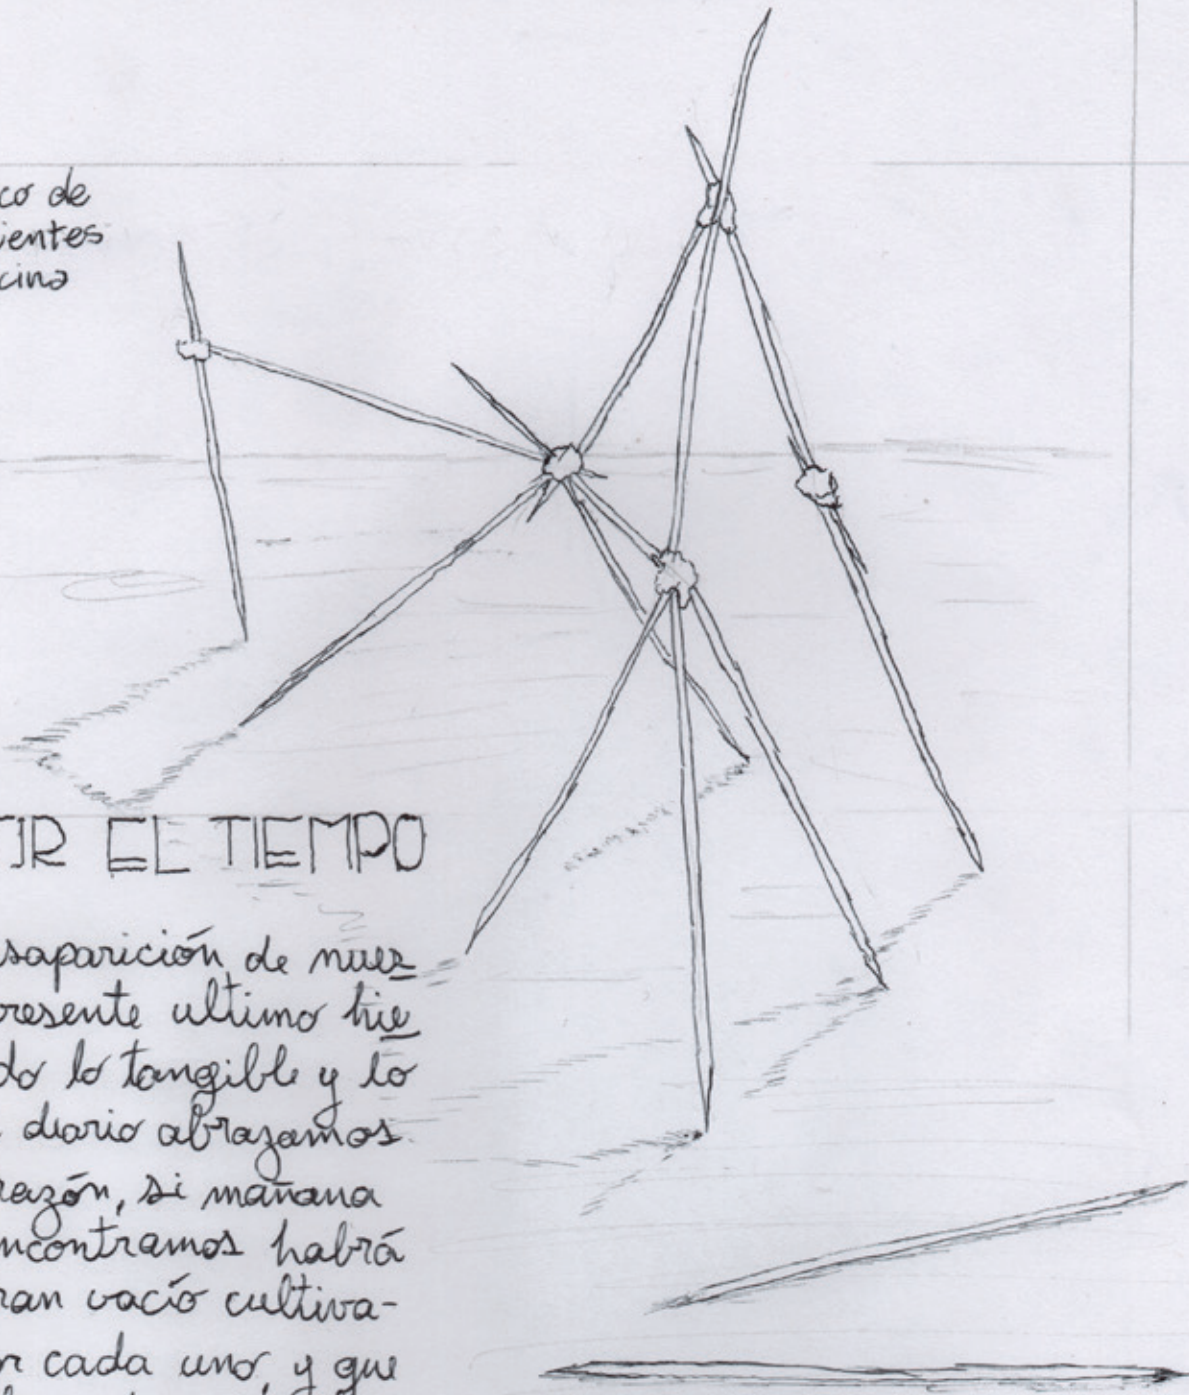 co de
ientes
cina
TIR EL TIEMPO
saparición de nues
resente ultimo hie
do lo tangible y lo
diario abrazamos
razón, si mañana
ncontramos habrá
ran vacío cultiva-
r cada uno, y que